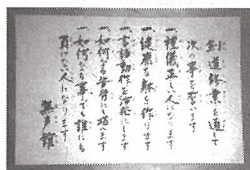 剣道修業を通して
次の事を学びます
一礼儀正しい人になります
一健康な体を作ります
一言語動作を活発にします
一如何なる苦労にも堪へます
一如何なる事でも誰にも
負けない人になります